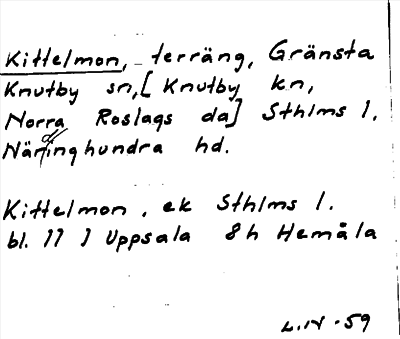 Kittelmon, terräng, Gränsta
Knutby sn, [Knutby kn,
Norra Roslags da] Sthlms l.
Närdinghundra hd.
Kittelmon. ek Sthlms l.
bl. 11 J Uppsala 8h Hemåla
L.IV.59